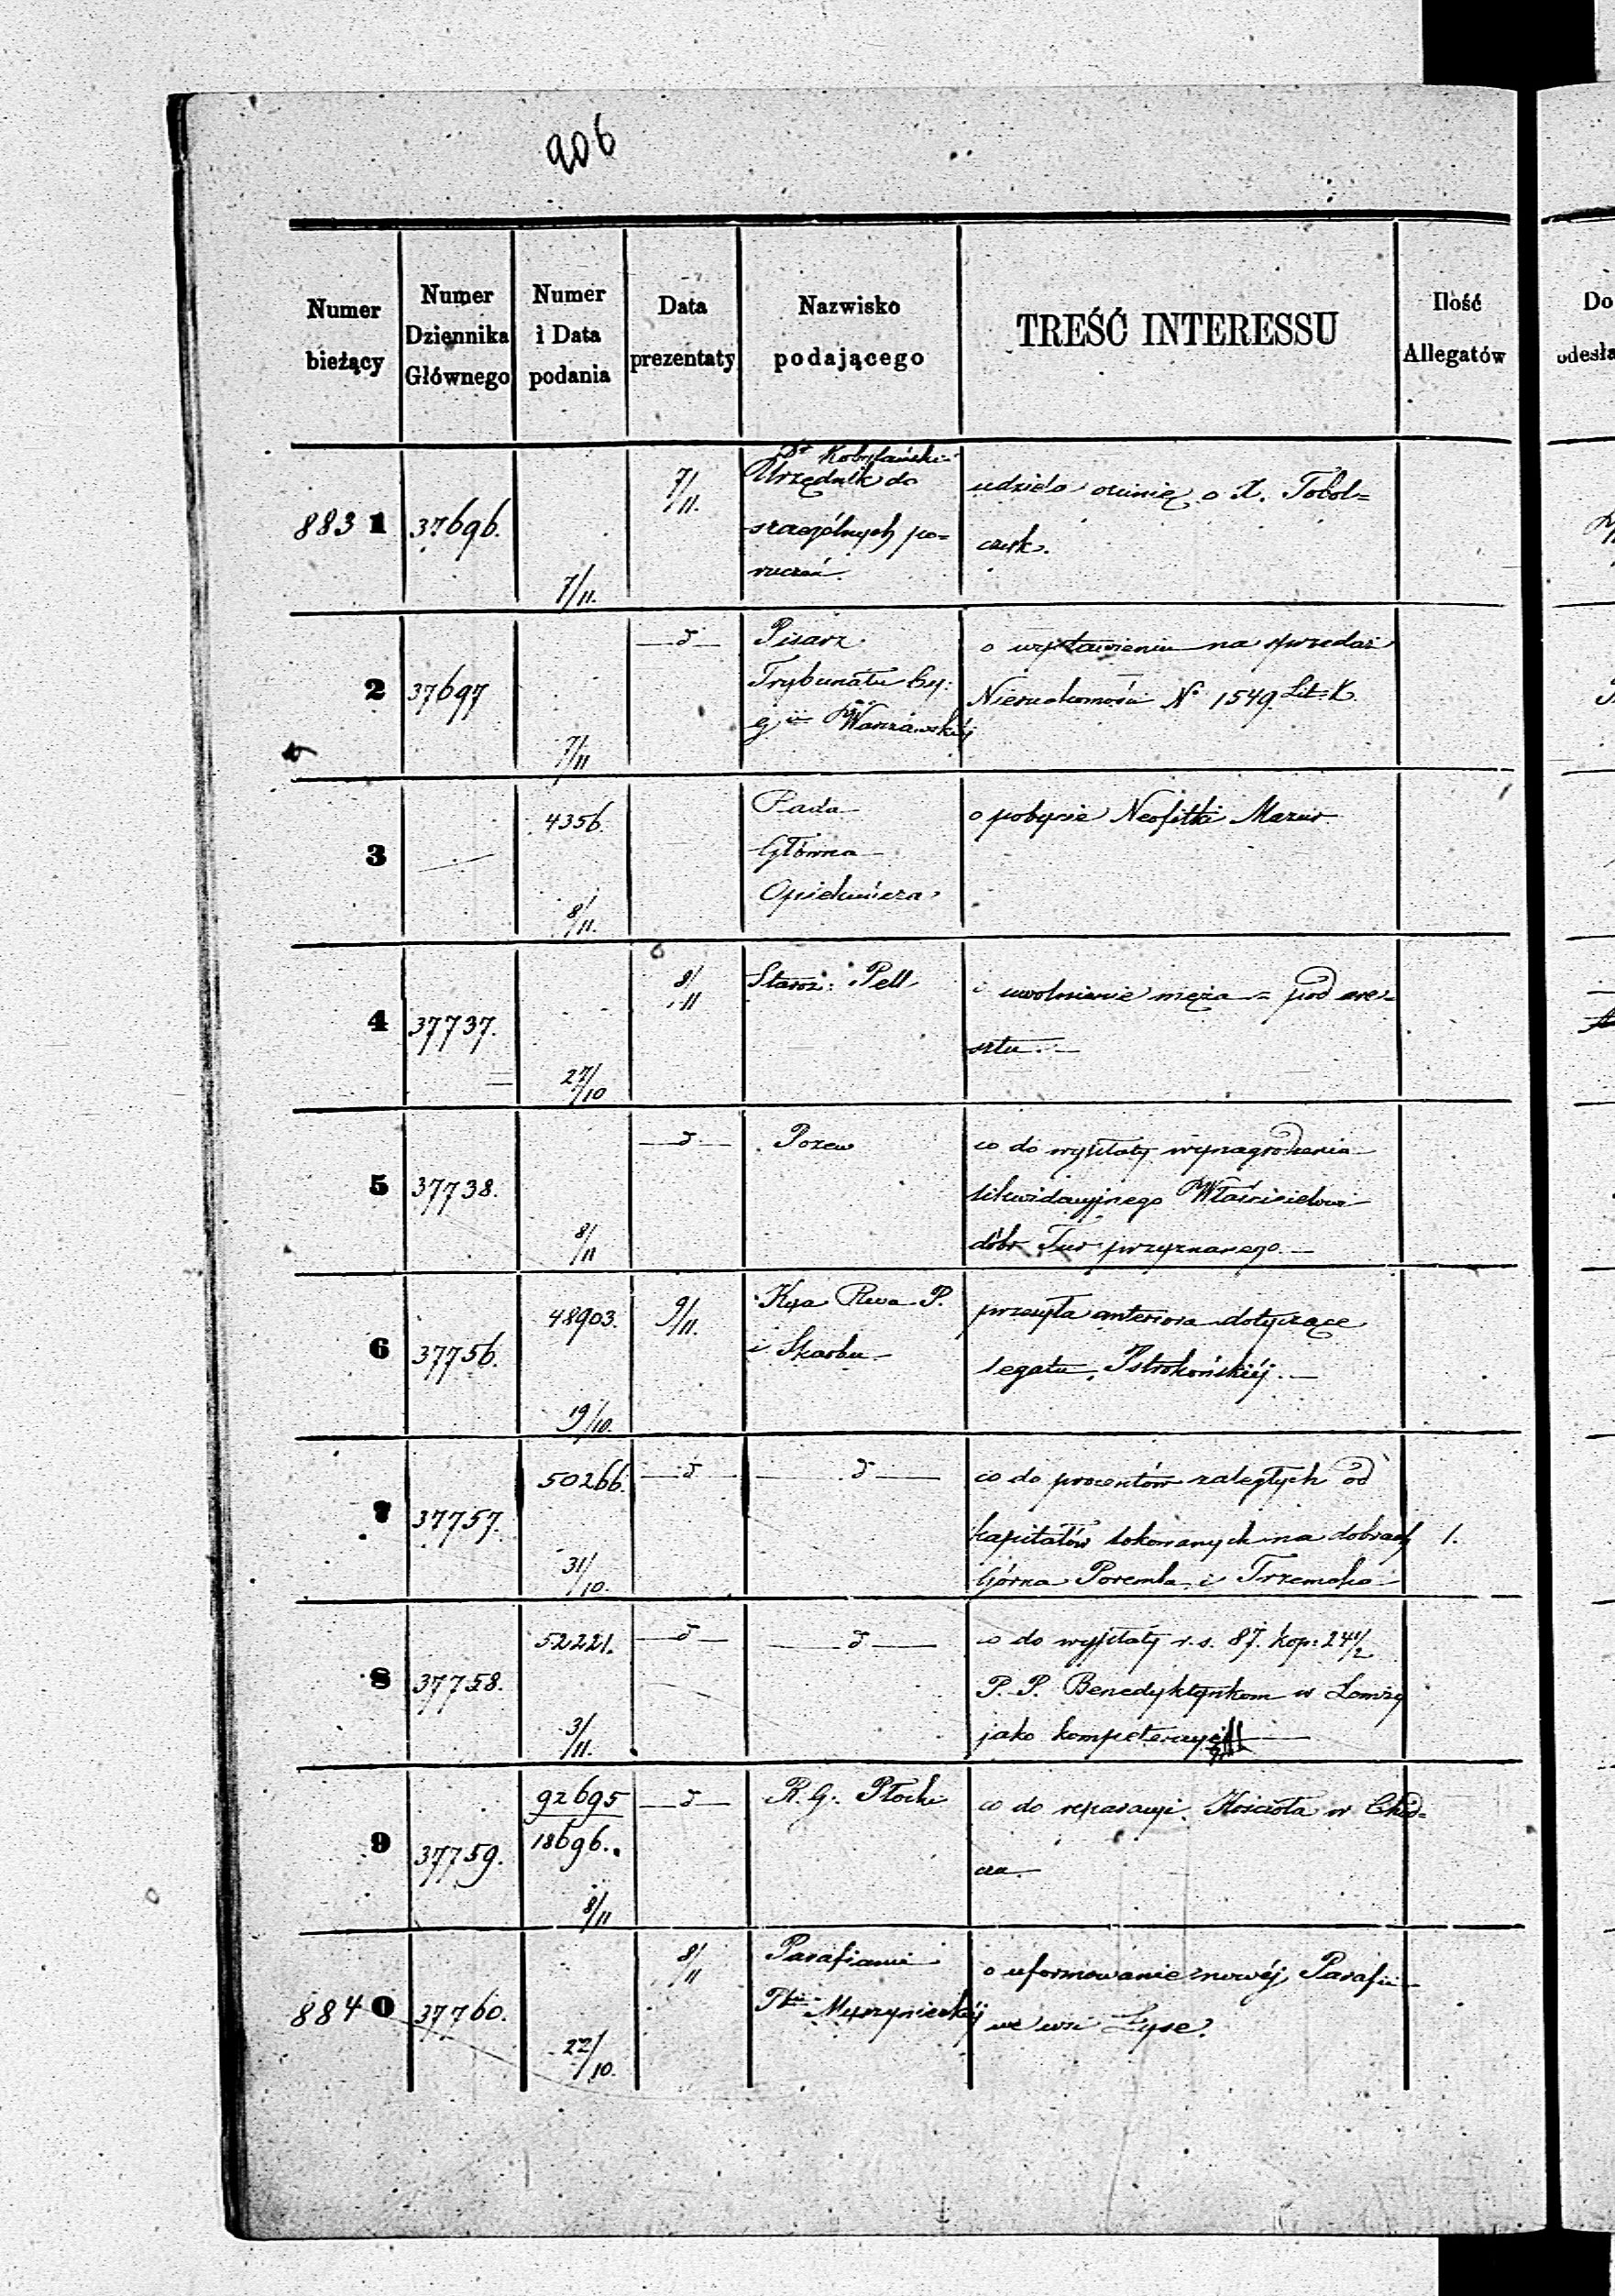 206
Numer bieżący
Numer Dziennika Głównego
Numer i Data podania
Data prezentaty
Nazwisko podającego
TREŚĆ INTERESSU
Ilość Allegatów
Do
odesła
8831
37696.
7/11.
7/11.
Dr Kobylański
Urzędnik do
szczególnych po=
ruczeń.
udziela opinię o X. Tobol=
czyk.
2
37697
7/11
—d—
Pisarz
Trybunału Cy:
Gii Warszawskiéj
o wystawieniu na sprzedaż
Nieruchomości No 1549. Lit: K.
3
4356.
8/11.
Rada
Główna
Opiekuńcza
o pobycie Neofitki Mazur
4
37737.
27/10
8/11
Staroz: Pell
o uwolnienie męża = pod are=
sztu. —
5
37738.
8/11
—d—
Pozew
co do wypłaty wynagrodzenia
likwidacyjnego Właścicielowi
dóbr Tur przyznanego. —
6
37756.
48903.
19/10.
9/11.
Kssa Rwa P.
i Skarbu
przesyła anteriora dotyczące
legatu Pstrokońskiéj. —
7
37757.
50266.
31/10.
—d—
—d—
co do procentów zaległych od
kapitałów lokowanych na dobrach
Górna Poremba i Trzemoha
1.
8
37758.
52221.
3/11.
—d—
—d—
co do wypłaty r. s. 87. kop: 24 1/2
P. P. Benedyktynkom w Łomży
jako kompetencyi
9
37759.
92695
18696.
8/11
—d—
R. G. Płocki
co do reparacyi Kościoła w Chod=
cza
8840
37760.
22/10.
8/11
Parafianie
Pfii Myszynieckiéj
o uformowanie nowéj Parafii
we wsi Łyse.